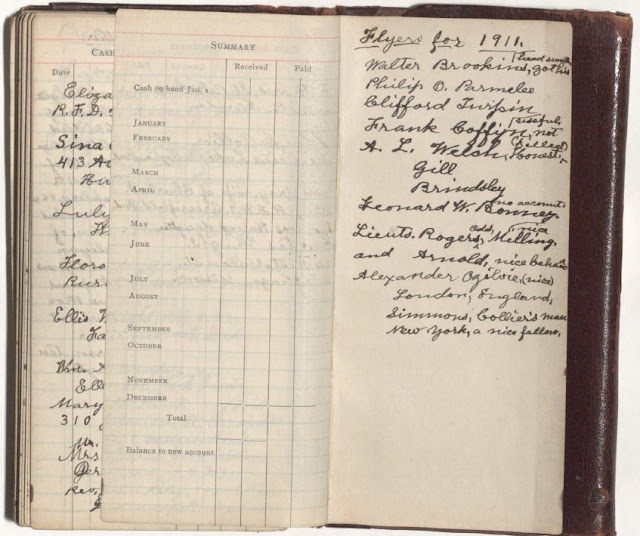 CAS
Date
Eliza
R.F.D.
Sina
413 A
Hu
Lulu
Floro
Rur
Ellis
Fa
Wm.
Ell
Mary
310
Mr.
Mrs
Ger
Rev.
SUMMARY
Received Paid
Cash on hand Jan. 1
JANUARY
FEBRUARY
MARCH
APRIL
MAY
JUNE
JULY
AUGUST
SEPTEMBER
OCTOBER
NOVEMBER
DECEMBER
Total
Balance to new account
Flyers for 1911.
head
Walter Brookins, got his
Philip O. Parmelee
Clifford Turpin
Frank Coffyn, not
(killed)
A. L. Welsh, honest,
Gill
Brindsley
no account
Leonard W. Bonney
odd, nice
Lieuts. Rogers, Milling,
and Arnold, nice
Alexander Ogilvie, (nice)
London, England,
Simmons, Collier's man
New York, a nice fellow.